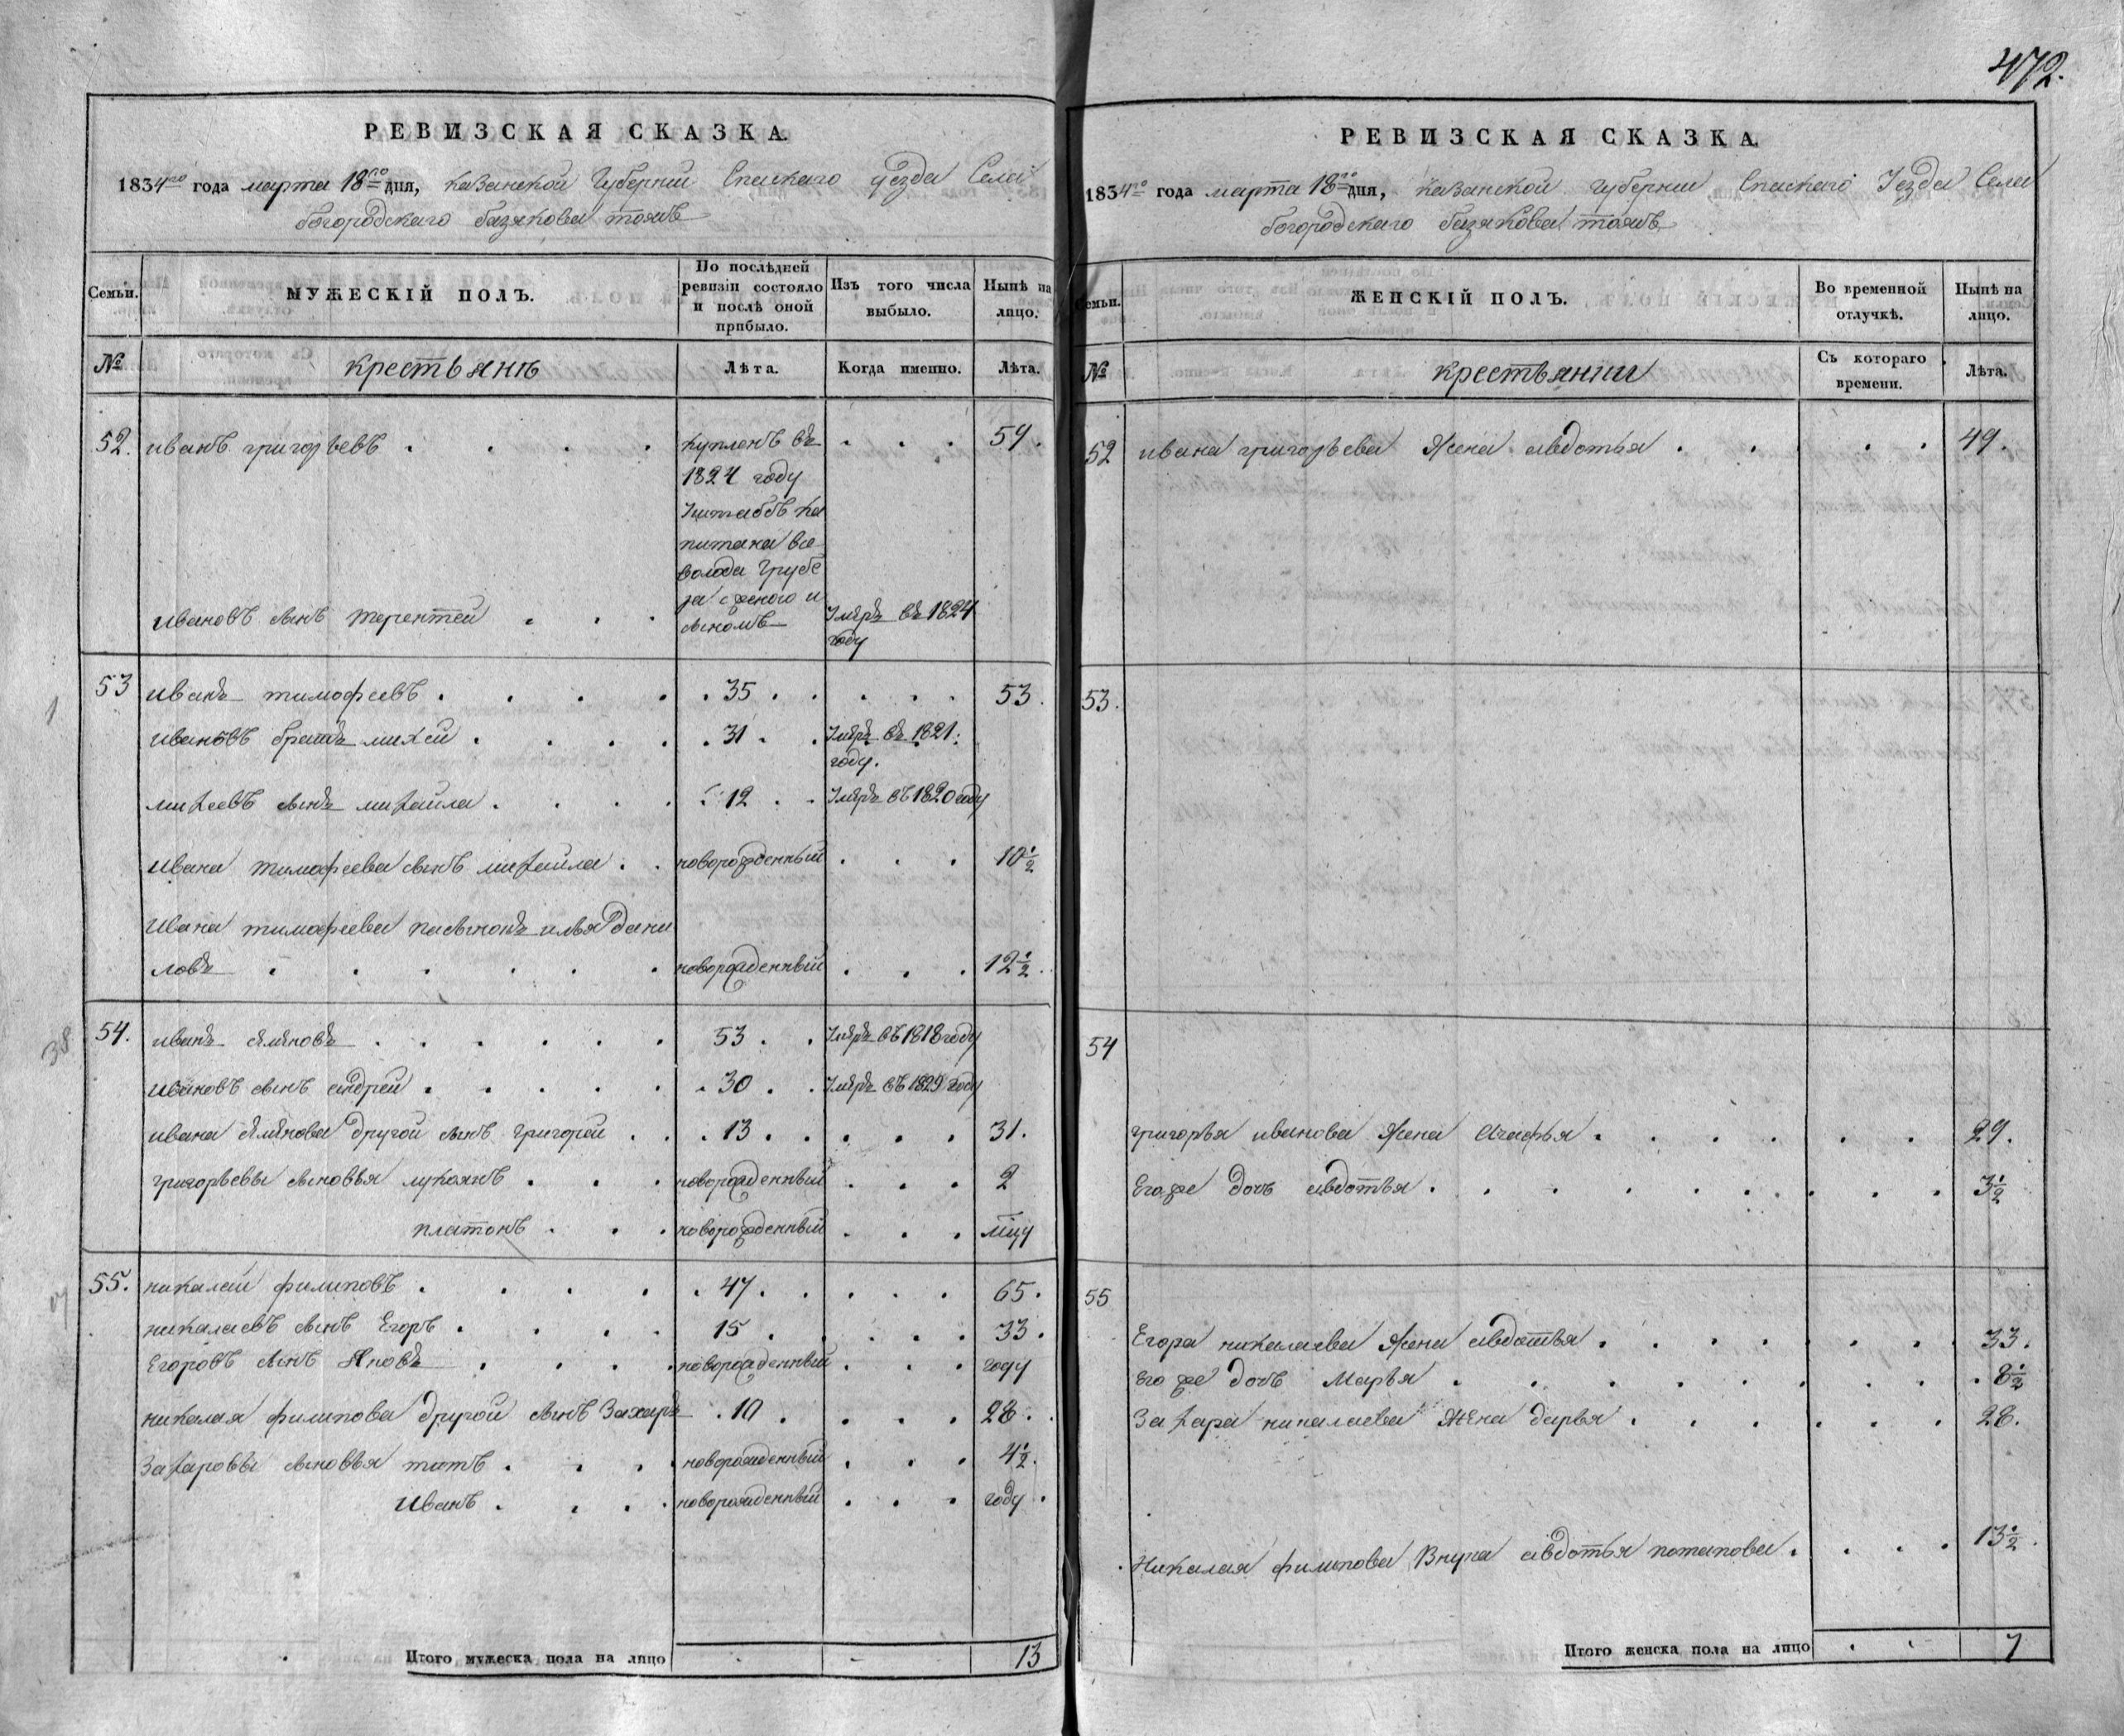 472.
РЕВИЗСКАЯ СКАЗКА.
1834го года марта 18го дня, казанской Губернии Спаскаго уезда Села
богородскаго базякова тожъ
Семьи.
МУЖЕСКІЙ ПОЛЪ.
По послѣдней
ревизіи состояло
и послѣ оной
прибыло.
Изъ того числа
выбыло.
Нынѣ на
лицо.
№
крестьянъ
Лѣта.
Когда именно.
Лѣта.
52. иванъ григорьевъ куpленъ въ 59.
1824 году
Штабъ ка
питана все
волода
с женою и
ивановъ сынъ терентей сыномъ Умръ въ 1824
году
53 иванъ тимофеевъ 35 53.
ивановъ братъ михей 31 Умръ въ 1821
году.
михеевъ сынъ михайла 12 Умръ въ 1820 году
ивана тимофеева сынъ михайла новорожденный 10 1/2
ивана тимофеева пасынокъ илья дани
ловъ новорожденный 12 1/2
54. иванъ 53 Умръ въ 1818 году
ивановъ сынъ андрей 30 Умръ въ 1829 году
ивана другой сынъ григорей 13 31.
григорьевы сыновья лукоянъ новорожденный 2
платонъ новорожденный мцу
55. никалай филиповъ 47 65.
никалаевъ сынъ Егоръ 15 33.
Егоровъ сынъ новорожденный году
никалая филипова другой сынъ Захаръ 10 28.
Захаровы сыновья титъ новорожденный 4 1/2
Иванъ новорожденный году
Итого мужеска пола на лицо 13
РЕВИЗСКАЯ СКАЗКА.
1834го года марта 18го дня, казанской губернии Спаскаго Уезда Села
богородскаго базякова тожъ
Семьи.
ЖЕНСКІЙ ПОЛЪ.
Во временной
отлучкѣ.
Нынѣ на
лицо.
№
крестьянки
Съ котораго
времени.
Лѣта.
52 ивана григорьева жена авдотья 49.
53.
54
григорья иванова жена Агафья 29.
Егоже дочь авдотья 3 1/2
55
Егора никалаева жена авдотья 33.
Его же дочь Марья 8 1/2
Захара никалаева жена дарья 28.
Никалая филипова Внука авдотья потапова 13 1/2
Итого женска пола на лицо 7